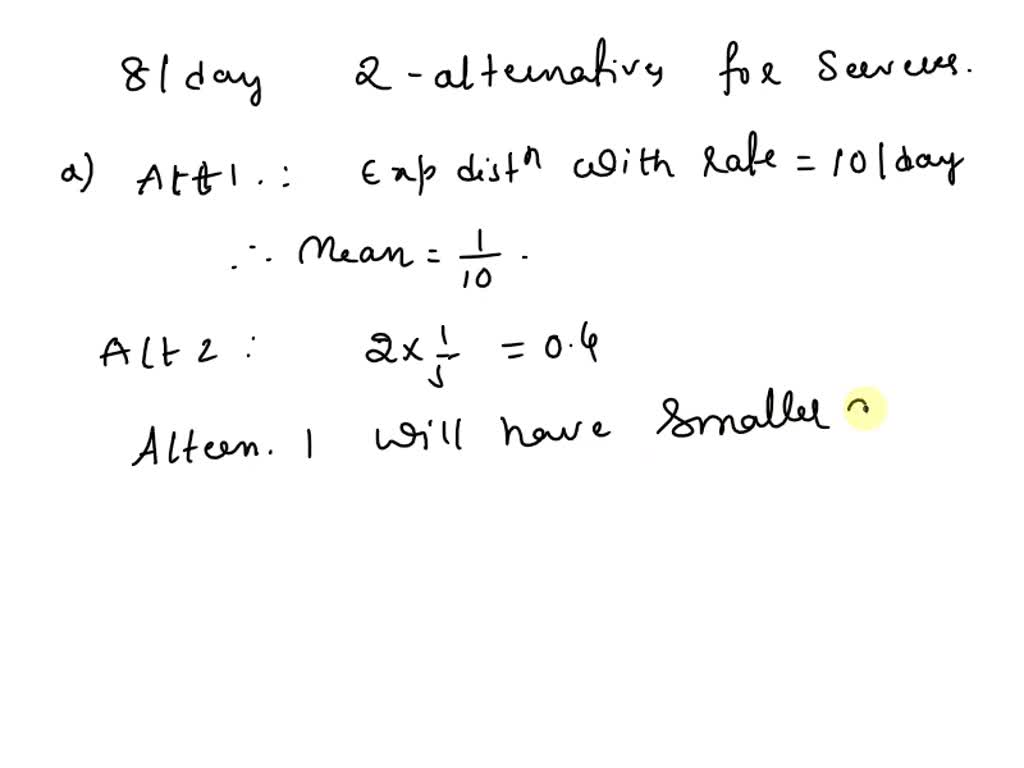 8/day 2-alternatives for Servers.
a) Alt 1 : Exp distⁿ with rate = 10/day
∴ Mean = 1/10 .
Alt 2 : 2 × 1/5 = 0.4
Altern. 1 will have smaller